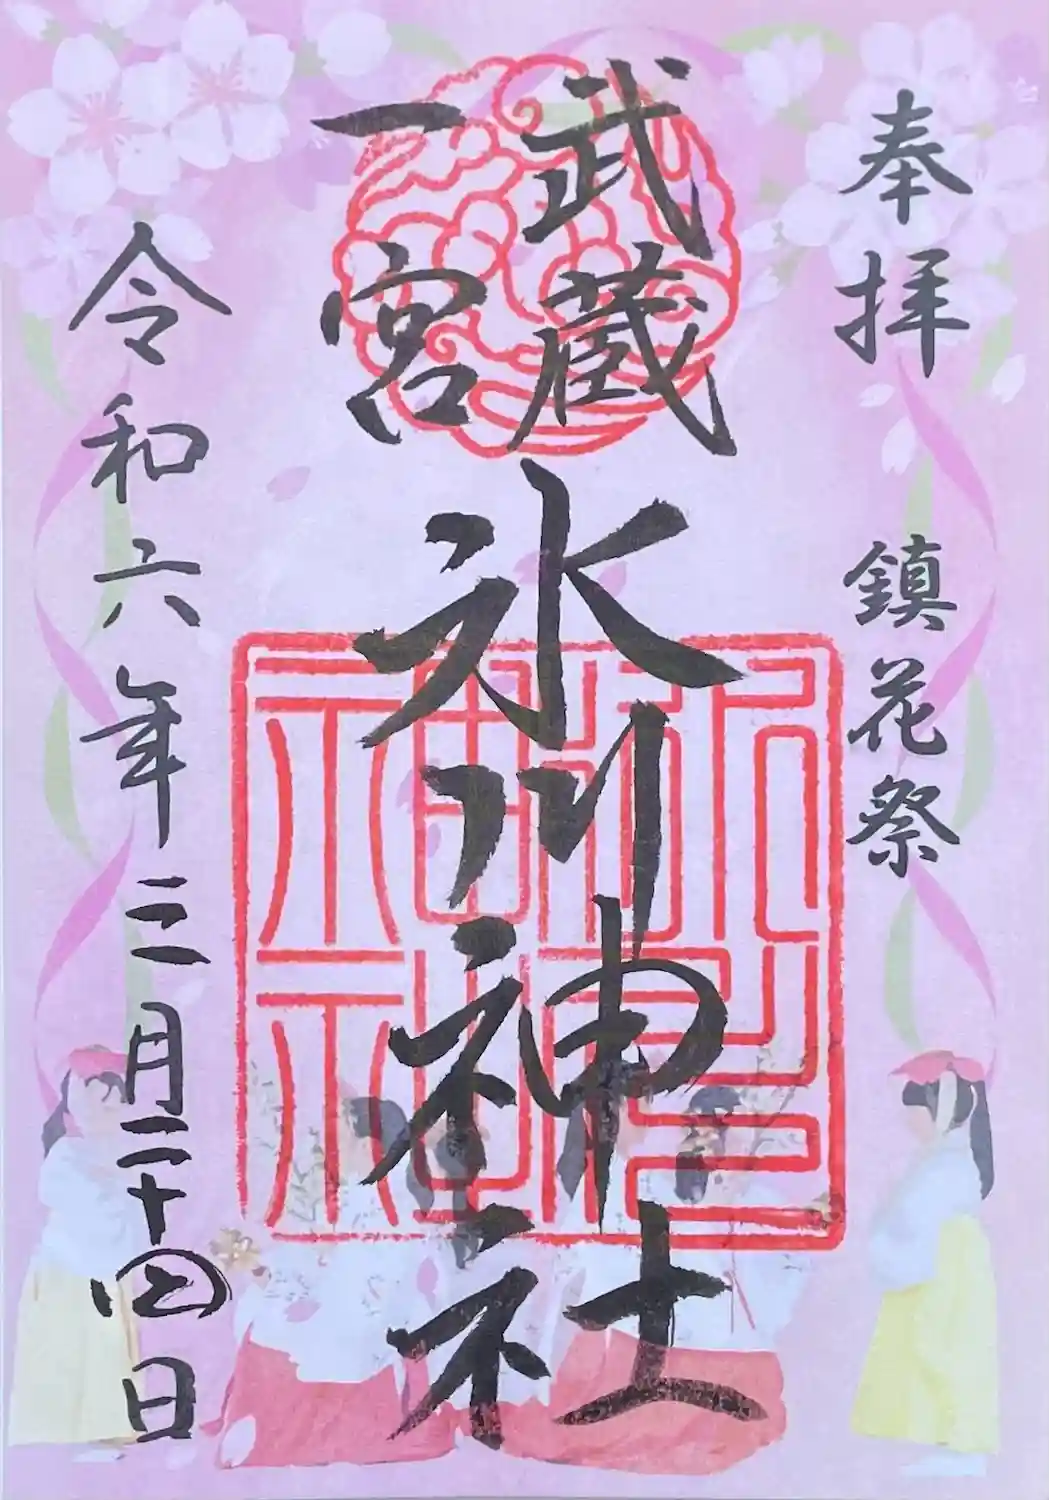 奉拝
鎮花祭
武蔵
一宮
氷川神社
令和六年三月二十四日
氷川神社